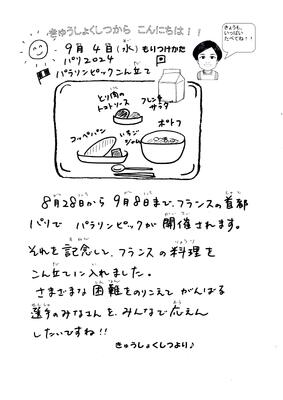 きゅうしょくしつから こんにちは！！
きょうも、
いっぱい
たべてね！！
9月 4日(水) もりつけかた
パリ2024
パラリンピックこん立て
とり肉の
トマトソース
フレンチ
サラダ
コッペパン
いちご
ジャム
ポトフ
8月28日から 9月8日まで、フランスの首都
パリで パラリンピックが 開催されます。
それを記念して、フランスの料理を
こん立てに入れました。
さまざまな 困難をのりこえて がんばる
選手のみなさんを、みんなで応えん
したいですね!!
きゅうしょくしつより♪